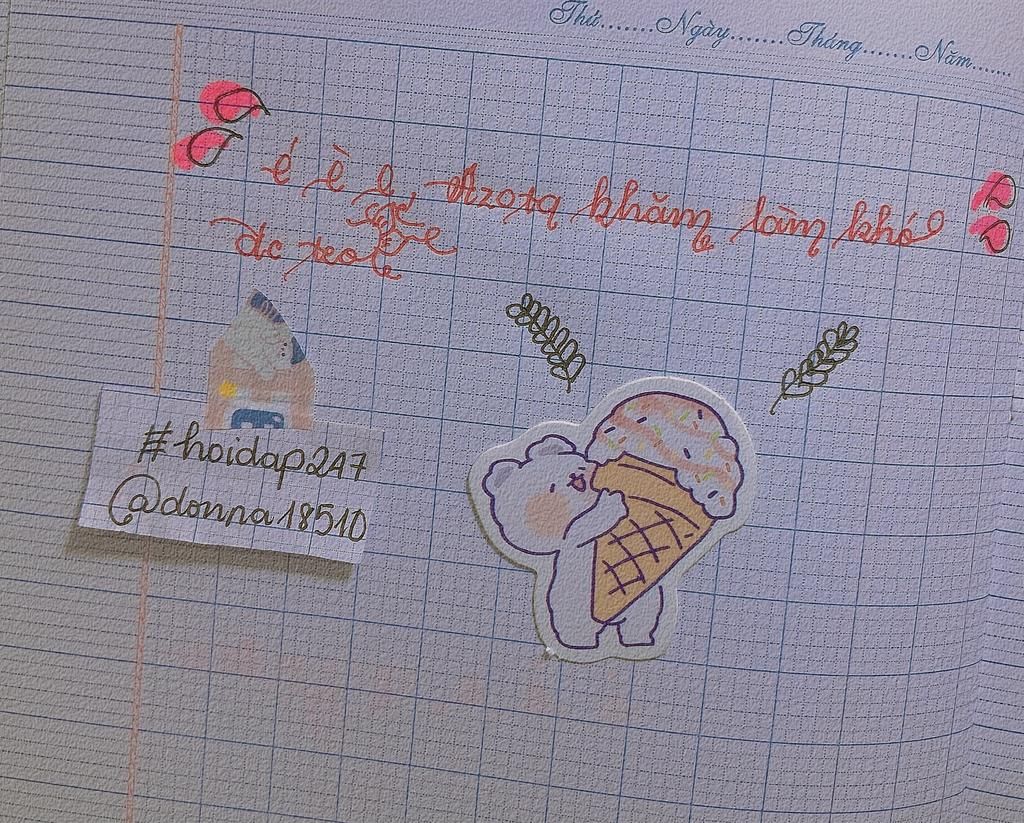 Thứ.......Ngày.......Tháng.......Năm.......
é è ẹ, Azota khăm làm khó
đc
#hoidap247
@donna18510